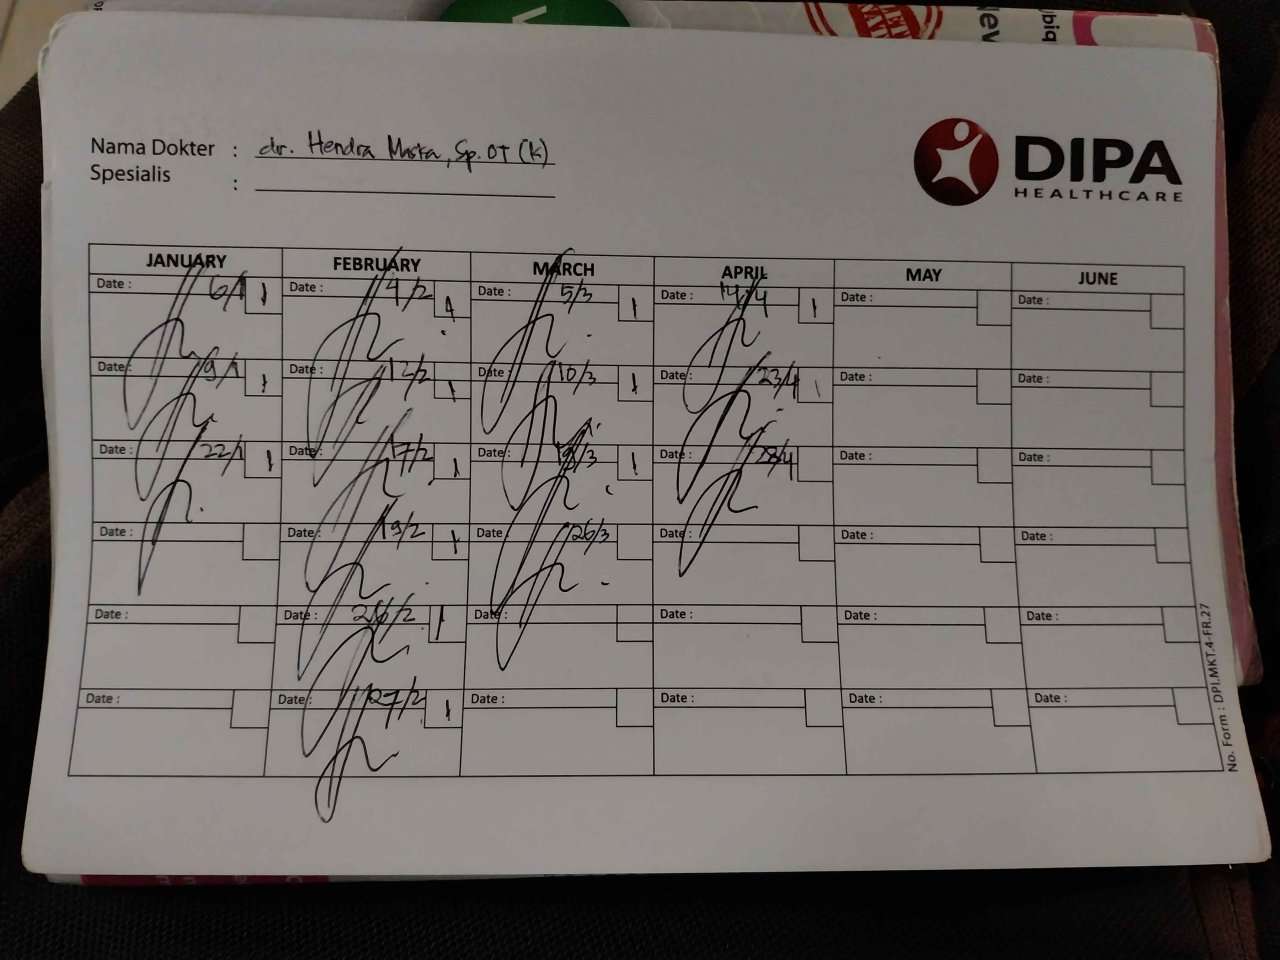 Nama Dokter : dr. Hendra Maska, Sp.OT (K)
Spesialis :
DIPA
HEALTHCARE
JANUARY FEBRUARY MARCH APRIL MAY JUNE
Date : 6/1 1 Date : 4/2 1 Date : 5/3 1 Date : 14/4 1 Date : Date :
Date : 9/1 1 Date : 12/2 1 Date : 10/3 1 Date : 23/4 1 Date : Date :
Date : 22/1 1 Date : 17/2 1 Date : 18/3 1 Date : 28/4 Date : Date :
Date : Date : 19/2 1 Date : 26/3 Date : Date : Date :
Date : Date : 26/2 1 Date : Date : Date : Date :
Date : Date : 27/2 1 Date : Date : Date : Date :
No. Form : DPI.MKT.4-FR.27